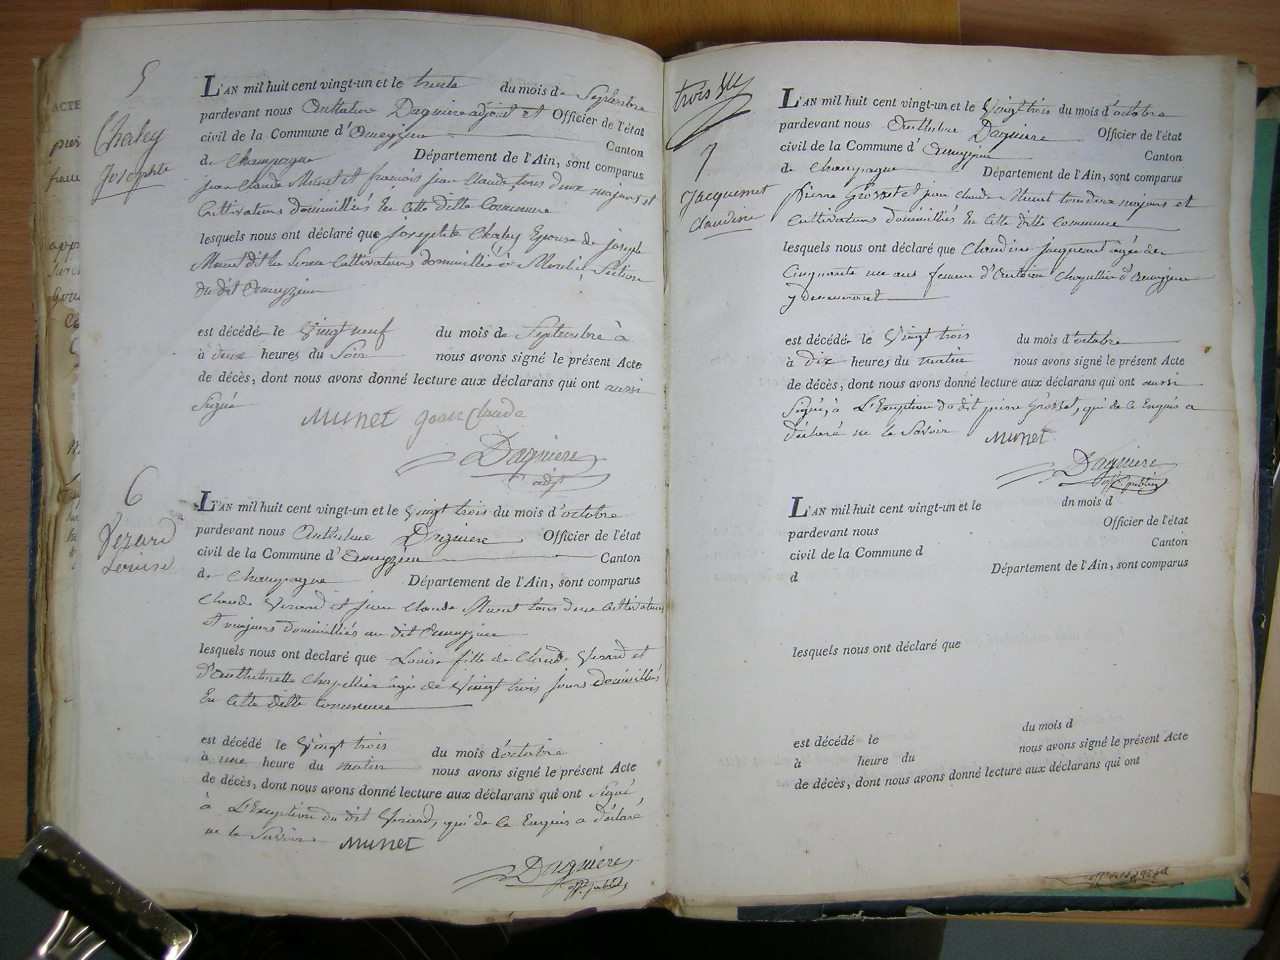 5
Chaley
Josephte
L'AN mil huit cent vingt-un et le trente du mois de Septembre
pardevant nous Anthelme Daguiere adjoint et Officier de l'état
civil de la Commune d' Canton
de Champagne Département de l'Ain, sont comparus
jean Claude Munet et françois jean Claude, tous deux majeurs et
Cultivateurs domiciliés En Cette ditte Commune
lesquels nous ont déclaré que Josephte Chaley Epouse de joseph
Munet dit Cultivateurs domiciliée à Section
du dit
est décédé le Vingt neuf du mois de Septembre à
à deux heures du Soir nous avons signé le présent Acte
de décès, dont nous avons donné lecture aux déclarans qui ont aussi
Signé
Munet jean Claude
Daguiere
adjt
6
Verard
Louise
L'AN mil huit cent vingt-un et le Vingt trois du mois d'octobre
pardevant nous Anthelme Daguiere Officier de l'état
civil de la Commune d' Canton
de Champagne Département de l'Ain, sont comparus
Claude Verard et jean Claude Munet tous deux Cultivateurs
et majeurs domiciliés au dit
lesquels nous ont declaré que Louise fille de Claude Verard et
d'Anthelmette Chapellier agée de Vingt trois jours domiciliés
En Cette ditte Commune
est décédé le Vingt trois du mois d'octobre
à une heure du matin nous avons signé le présent Acte
de décès, dont nous avons donné lecture aux déclarans qui ont Signé
à L'Exception du dit Verard, qui de ce Enquis a déclaré
ne le Savoir Munet
Daguiere
offr public
trois
7
Jacquemet
Claudine
L'AN mil huit cent vingt-un et le Vingt trois du mois d'octobre
pardevant nous Anthelme Daguiere Officier de l'état
civil de la Commune d' Canton
de Champagne Département de l'Ain, sont comparus
Pierre Grosset et jean Claude Munet tous deux majeurs et
Cultivateurs domiciliés En Cette ditte Commune
lesquels nous ont déclaré que Claudine Jaquemet agée de
Cinquante un ans femme d'Anthelme Chapellier d'
y demeurant
est décédé le Vingt trois du mois d'octobre
à dix heures du matin nous avons signé le présent Acte
de décès, dont nous avons donné lecture aux déclarans qui ont aussi
Signé, à L'Exception du dit pierre Grosset, qui de ce Enquis a
déclaré ne le Savoir Munet
Daguiere
offr public
L'AN mil huit cent vingt-un et le dn mois d
pardevant nous Officier de l'état
civil de la Commune d Canton
d Département de l'Ain, sont comparus
lesquels nous ont déclaré que
est décédé le du mois d
à heure du nous avons signé le présent Acte
de décès, dont nous avons donné lecture aux déclarans qui ont